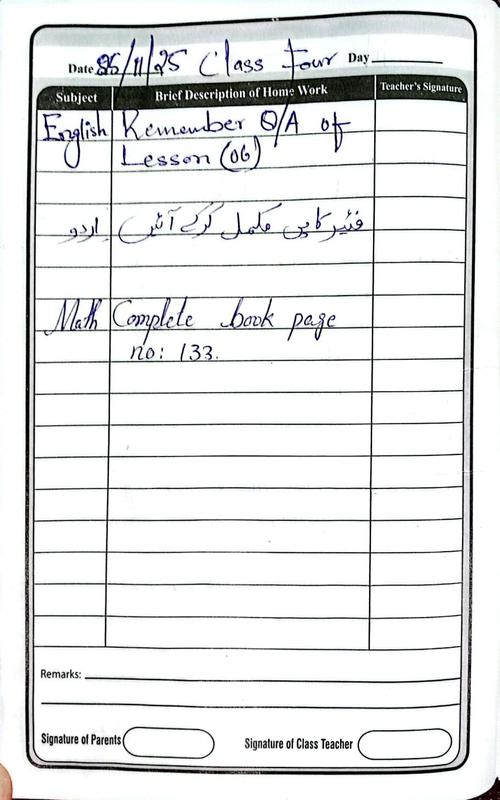 Date 25/11/25 Class Four Day
Subject Brief Description of Home Work Teacher's Signature
English Remember Q/A of
Lesson (06)
اردو فئیر کاپی مکمل کرکے آئیں
Math Complete book page
no: 133.
Remarks:
Signature of Parents Signature of Class Teacher